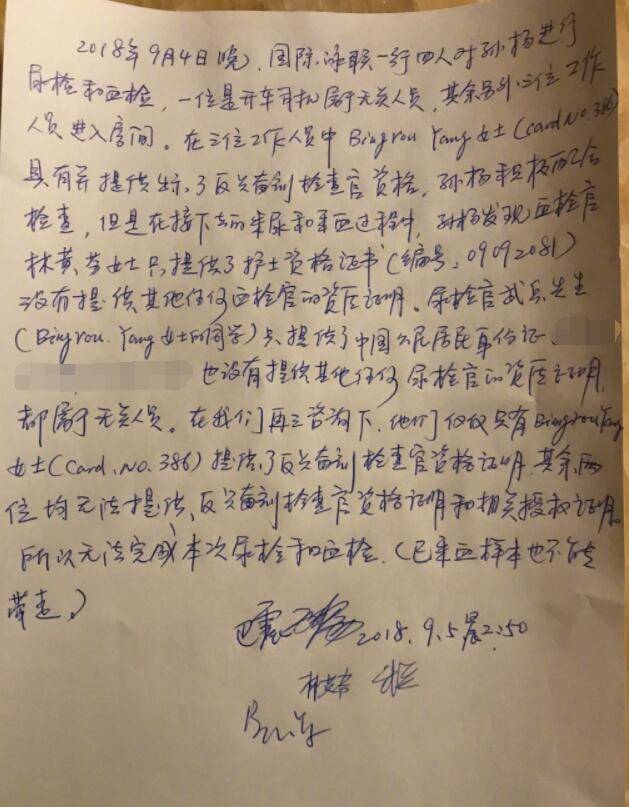 2018年9月4日晚,国际泳联一行四人对孙杨进行
尿检和血检,一位是开车司机属于无关人员,其余另外三位工作
人员进入房间。在三位工作人员中Bingrou Yang女士(card No. 386)
具有并提供出示了反兴奋剂检查官资格,孙杨积极配合
检查,但是在接下去的采尿和采血过程中,孙杨发现血检官
林黄芬女士只提供了护士资格证书(编号:09092081)
没有提供其他任何血检官的资质证明。尿检官武兵先生
(Bingrou. Yang女士的同学)只提供了中国公民居民身份证、
也没有提供其他任何尿检官的资质证明,
都属于无关人员。在我们再三咨询下,他们仅仅只有Bingrou Yang
女士(Card, No. 386)提供了反兴奋剂检查官资格证明,其余两
位均无法提供反兴奋剂检查官资格证明和相关授权证明。
所以无法完成本次尿检和血检.(已采血样本也不能
带走。)
2018. 9.5晨2:50